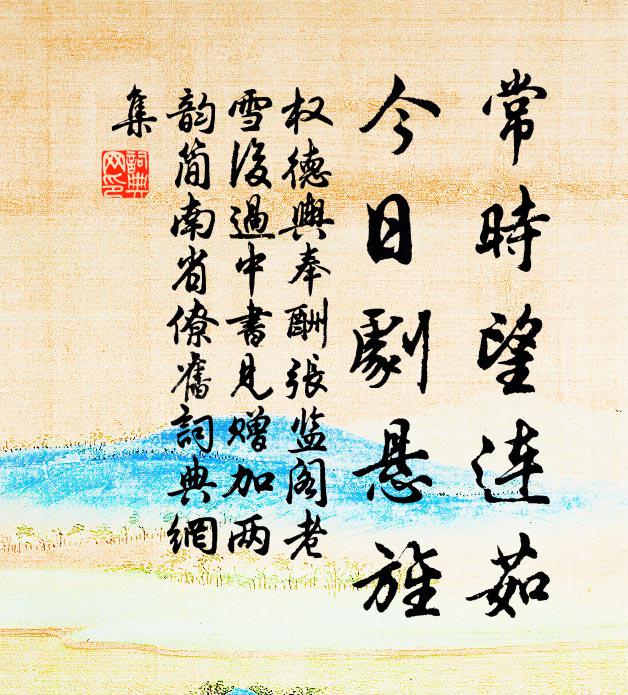 常時望連茹
今日劇悬旌
权德與奉酬張监阁老
雪後過中書見赠加两
韵简南省僚舊詞典網
集
詞典网印